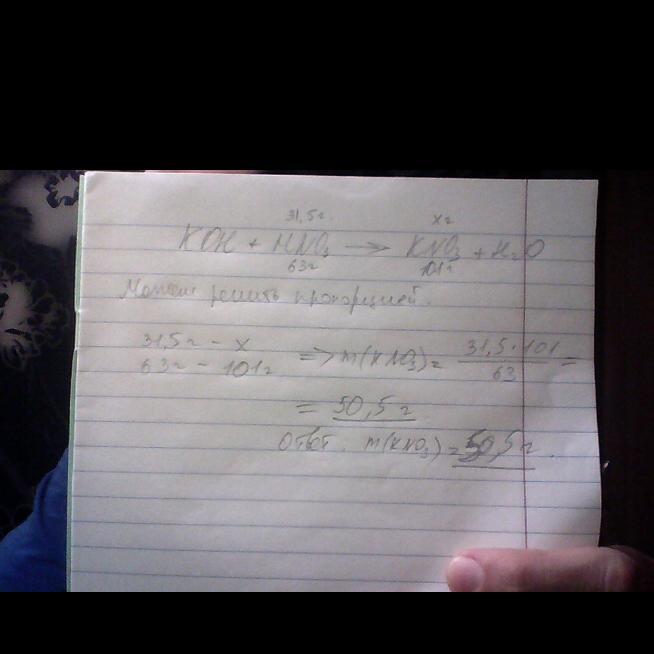 31,5г. хг
KOH + HNO₃ → KNO₃ + H₂O
63г 101г
Можем решить пропорцией.
31,5г – х => m(KNO₃) = 31,5·101 / 63 =
63г – 101г
= 50,5г
Ответ. m(KNO₃) = 50,5г.